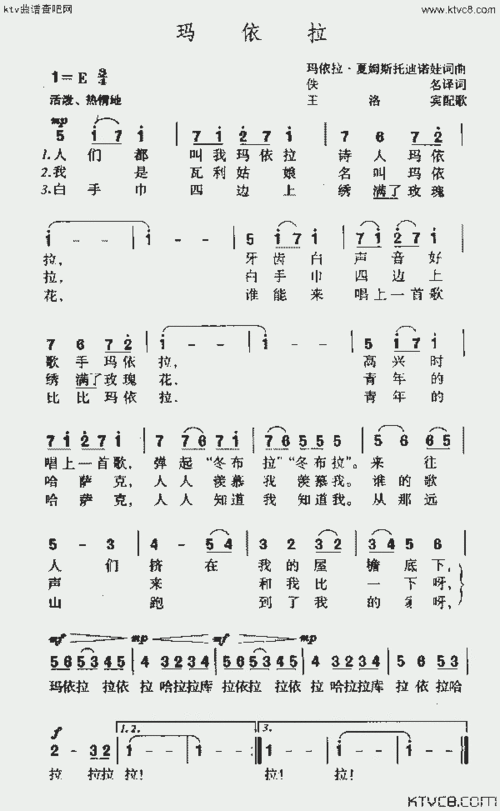 ktv曲谱查吧网
www.ktvc8.com
玛依拉
1=E 3/4
玛依拉·夏姆斯托迪诺娃词曲
佚名译词
活泼、热情地
王洛宾配歌
mp
5 1 7 1 7 1 2 7 1 5 6 7 2
1.人们都叫我玛依拉诗人玛依
2.我是瓦利姑娘名叫玛依
3.白手巾四边上绣满了玫瑰
1 - - 1 - - 5 1 7 1 7 1 2 7 1
拉,牙齿白声音好
拉,白手巾四边上
花,谁能来唱上一首歌
7 6 7 2 1 - - 1 - - 5 1 7 1
歌手玛依拉,高兴时
绣满了玫瑰花.青年的
比比玛依拉.青年的
7 1 2 7 1 7 7 6 7 6 5 5 5 5 6 6 5
唱上一首歌,弹起“冬布拉”“冬布拉”。来往
哈萨克,人人羡慕我羡慕我。谁的歌
哈萨克,人人知道我知道我。从那远
5 - 3 4 - 5 4 3 2 3 2 3 4 5 4
人们挤在我的屋檐底下,
声来和我比一下呀,
山跑到了我的家呀,
mf mp mf mp
5 6 5 3 4 5 4 3 2 3 4 5 6 5 3 4 5 4 3 2 3 4 5 3 4 5
玛依拉拉依拉哈拉拉库拉依拉拉依拉哈拉拉库拉依拉哈
f 1.2. 3.
2 - 3 2 1 - - 1 - : 1 - - 1 -
拉拉拉拉!拉!拉!
KTVC8.COM